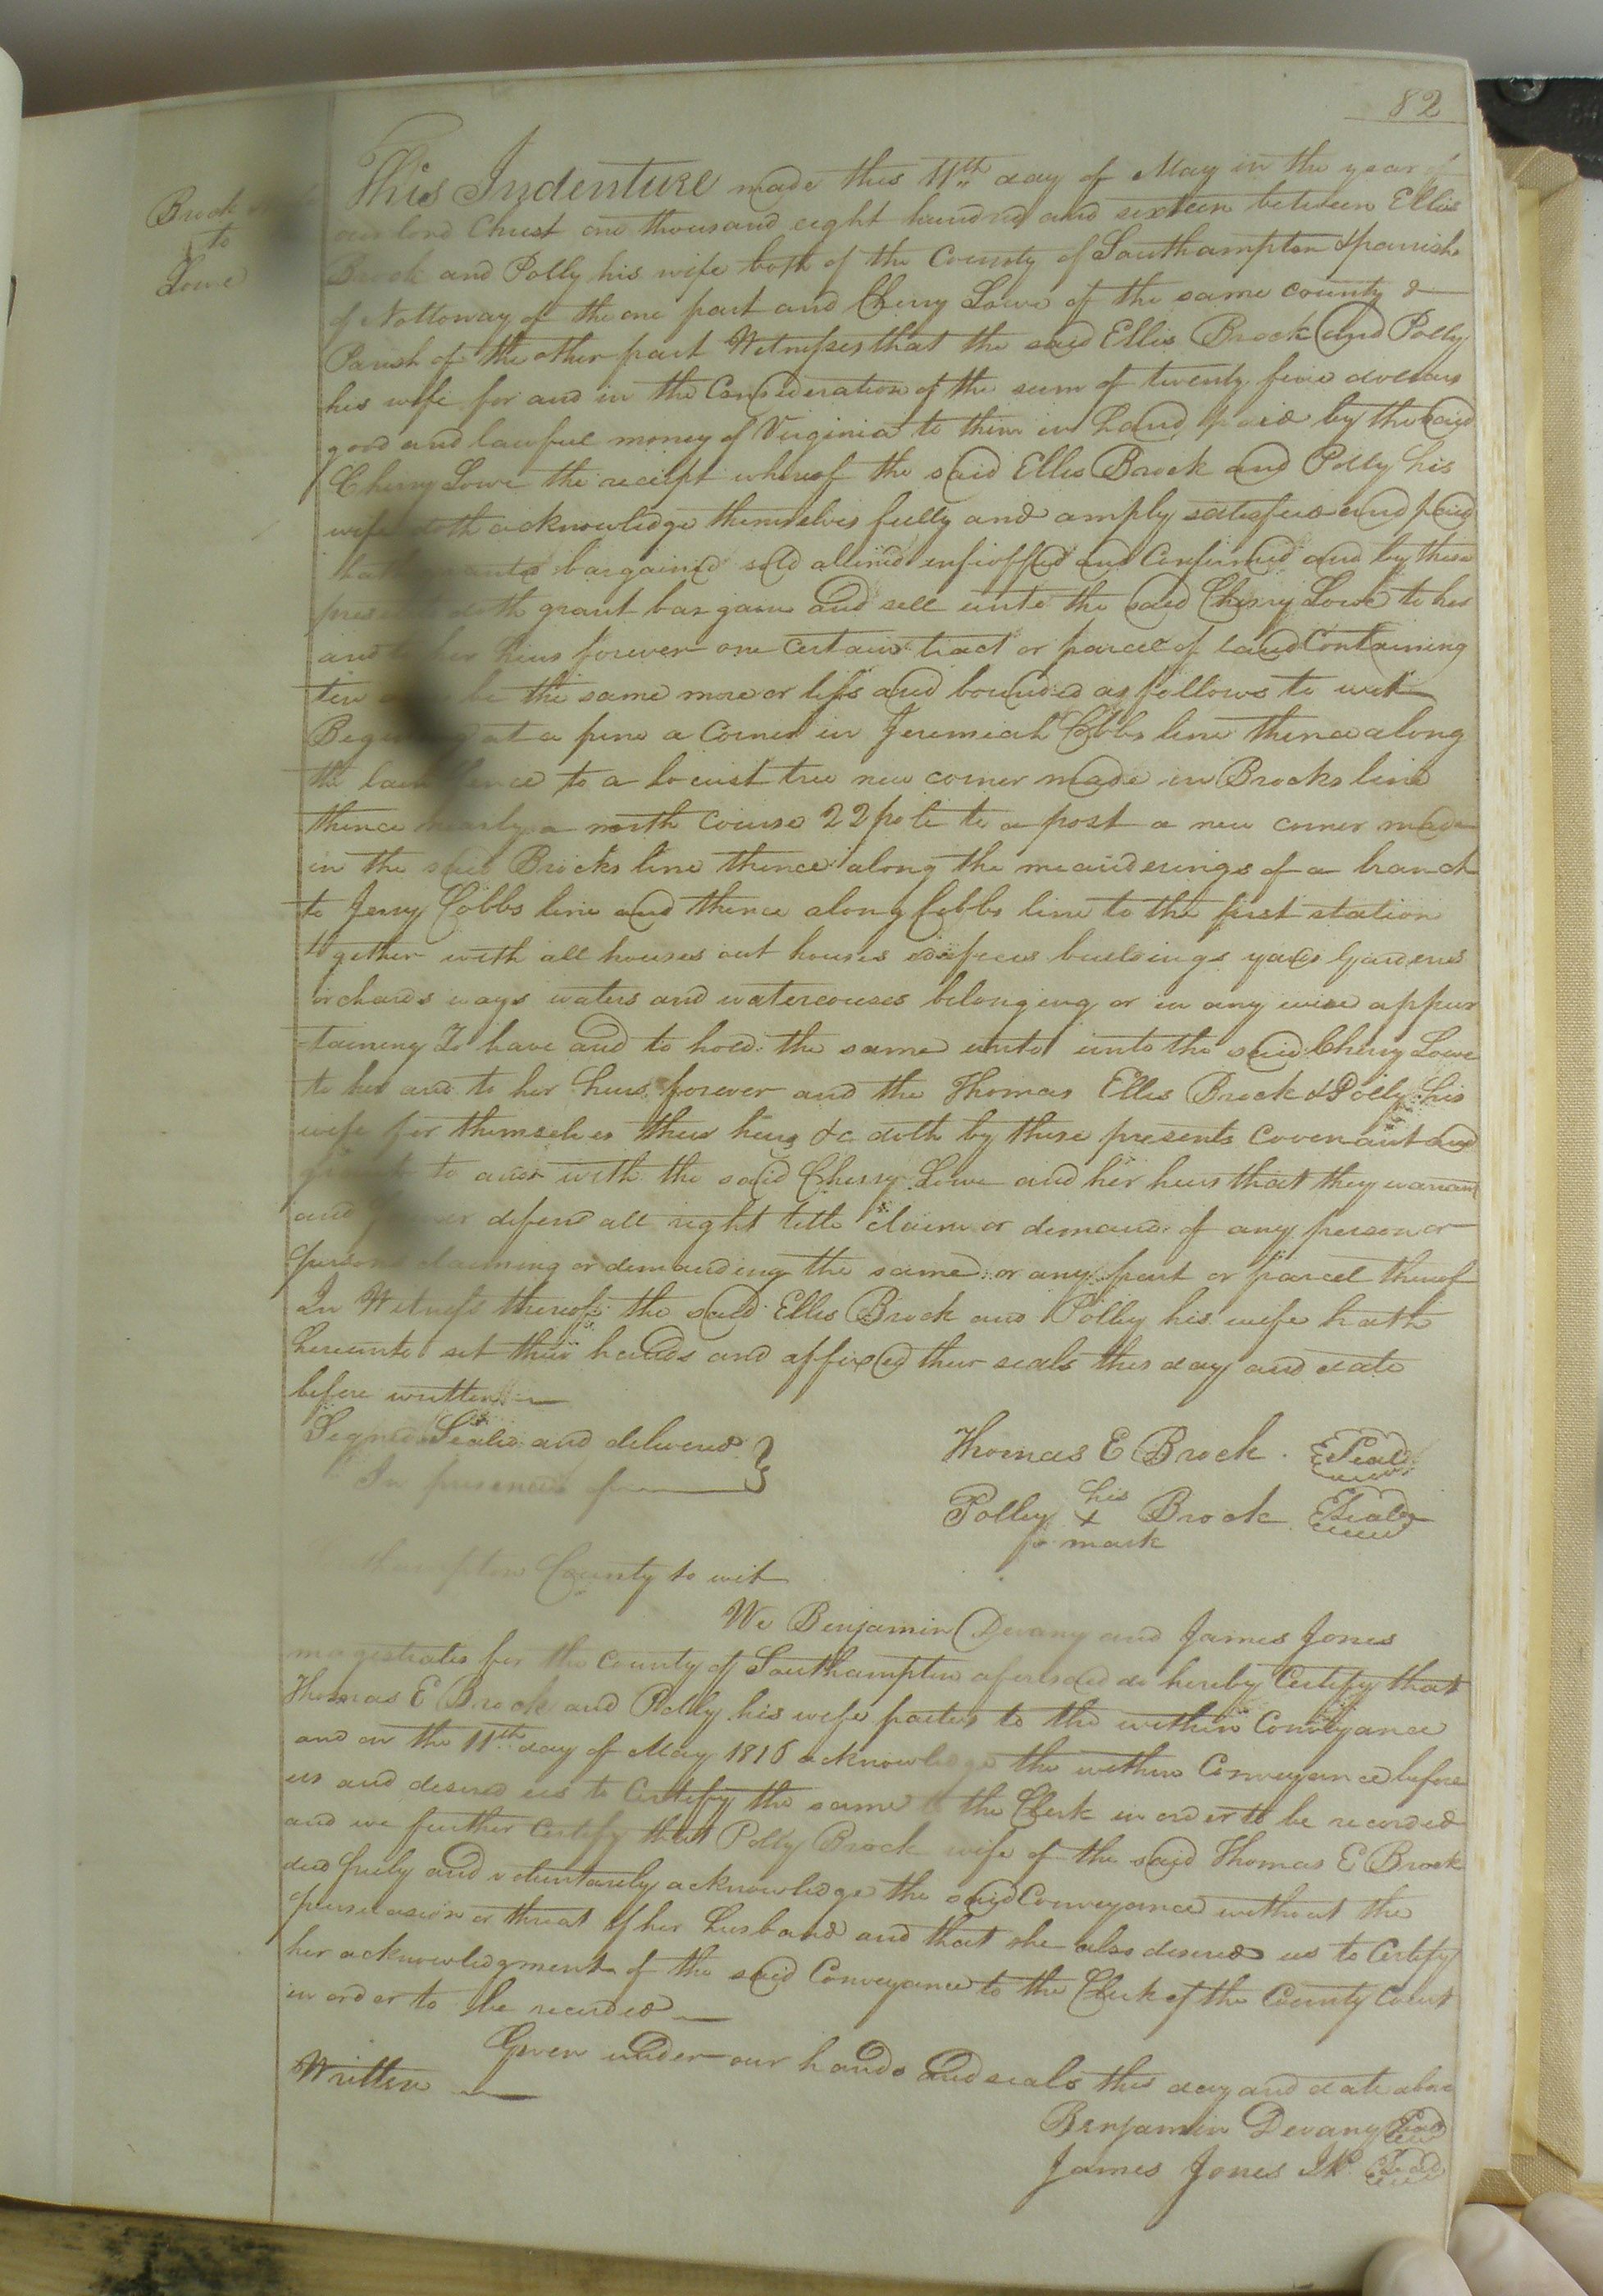 82
Brock
to
Lowe
This Indenture made this 11th day of May in the year of
our lord Christ one thousand eight hundred and sixteen between Ellis
Brock and Polly his wife both of the County of Southampton & parrish
of Nottoway of the one part and Cherry Lowe of the same county &
Parish of the other part Witnesses that the said Ellis Brock and Polly
his wife for and in the Consideration of the sum of twenty five dollars
good and lawful money of Virginia to them in hand paid by the said
Cherry Lowe the receipt whereof the said Ellis Brock and Polly his
wife doth acknowledge themselves fully and amply satisfied and paid
bargained sold aliened enfioffed and Confirmed and by these
doth grant bargain and sell unto the said Cherry Lowe to her
and to her heirs forever one certain tract or parcel of land Containing
ten be the same more or less and bounded as follows to wit
at a pine a Corner in Jeremiah Cobbs line thence along
the to a locust tree new corner made in Brocks line
thence nearly a north course 22 pole to a post a new corner made
in the said Brocks line thence along the meanderings of a branch
to Jerry Cobbs line and thence along Cobbs line to the first station
together with all houses out houses edifices buildings yards Gardens
orchards ways waters and watercouses belonging or in any wise appur
-taining To have and to hold the same unto unto the said Cherry Lowe
to her and to her heirs forever and the Thomas Ellis Brock & Polly his
wife for themselves their heirs &c doth by these presents Covenant and
to and with the said Cherry Lowe and her heirs that they warrant
and defend all right title claim or demand of any person or
persons claiming or demanding the same or any part or parcel thereof
In Witness thereof the said Ellis Brock and Polley his wife hath
hereunto set their hands and affixed their seals this day and date
before written
Signed Sealed and delivered
In presence of
Thomas E Brock Seal
Polley his x mark Brock Seal
County to wit
We Benjamin Devany and James Jones
magistrates for the County of Southampton aforesaid do hereby Certify that
Thomas E Brock and Polly his wife parties to the within Conveyance
and on the 11th day of May 1816 acknowledge the within Conveyance before
us and desired us to Certify the same to the Clerk in order to be recorded
and we further Certify that Polly Brock wife of the said Thomas E Brock
did freely and voluntarely acknowledge the said Conveyance without the
persuasion or threat of her husband and that she also desired us to Certify
her acknowledgment of the said Conveyance to the Clerk of the County Court
in order to be recorded
Given under our hands and seals this day and date above
Written
Benjamin Devany Seal
James Jones Seal